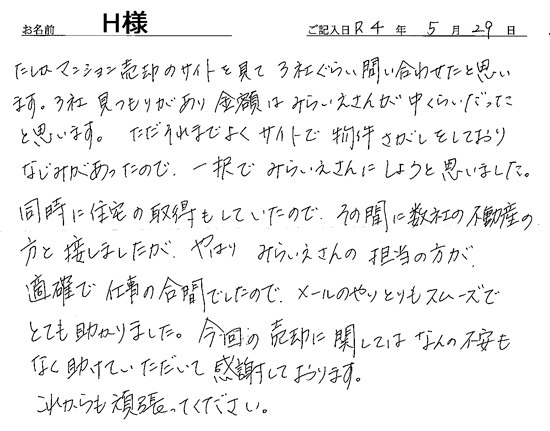 お名前 H様 ご記入日 R4 年 5 月 29 日
たしかマンション売却のサイトを見て 3社ぐらい問い合わせたと思い
ます。3社 見つもりがあり 金額は みらいえさんが 中くらいだったこ
と思います。 ただそれまでよく サイトで 物件 さがしをしており
なじみがあったので、一択で みらいえさんに しようと思いました。
同時に住宅の取得もしていたので、その間に数社の不動産の
方と 接しましたが、やはり みらいえさんの 担当の方が、
適確で 仕事の合間でしたので、メールのやりとりもスムーズで
とても 助かりました。今回の 売却に 関しては なんの不安も
なく 助けていただいて 感謝しております。
これからも頑張ってください。